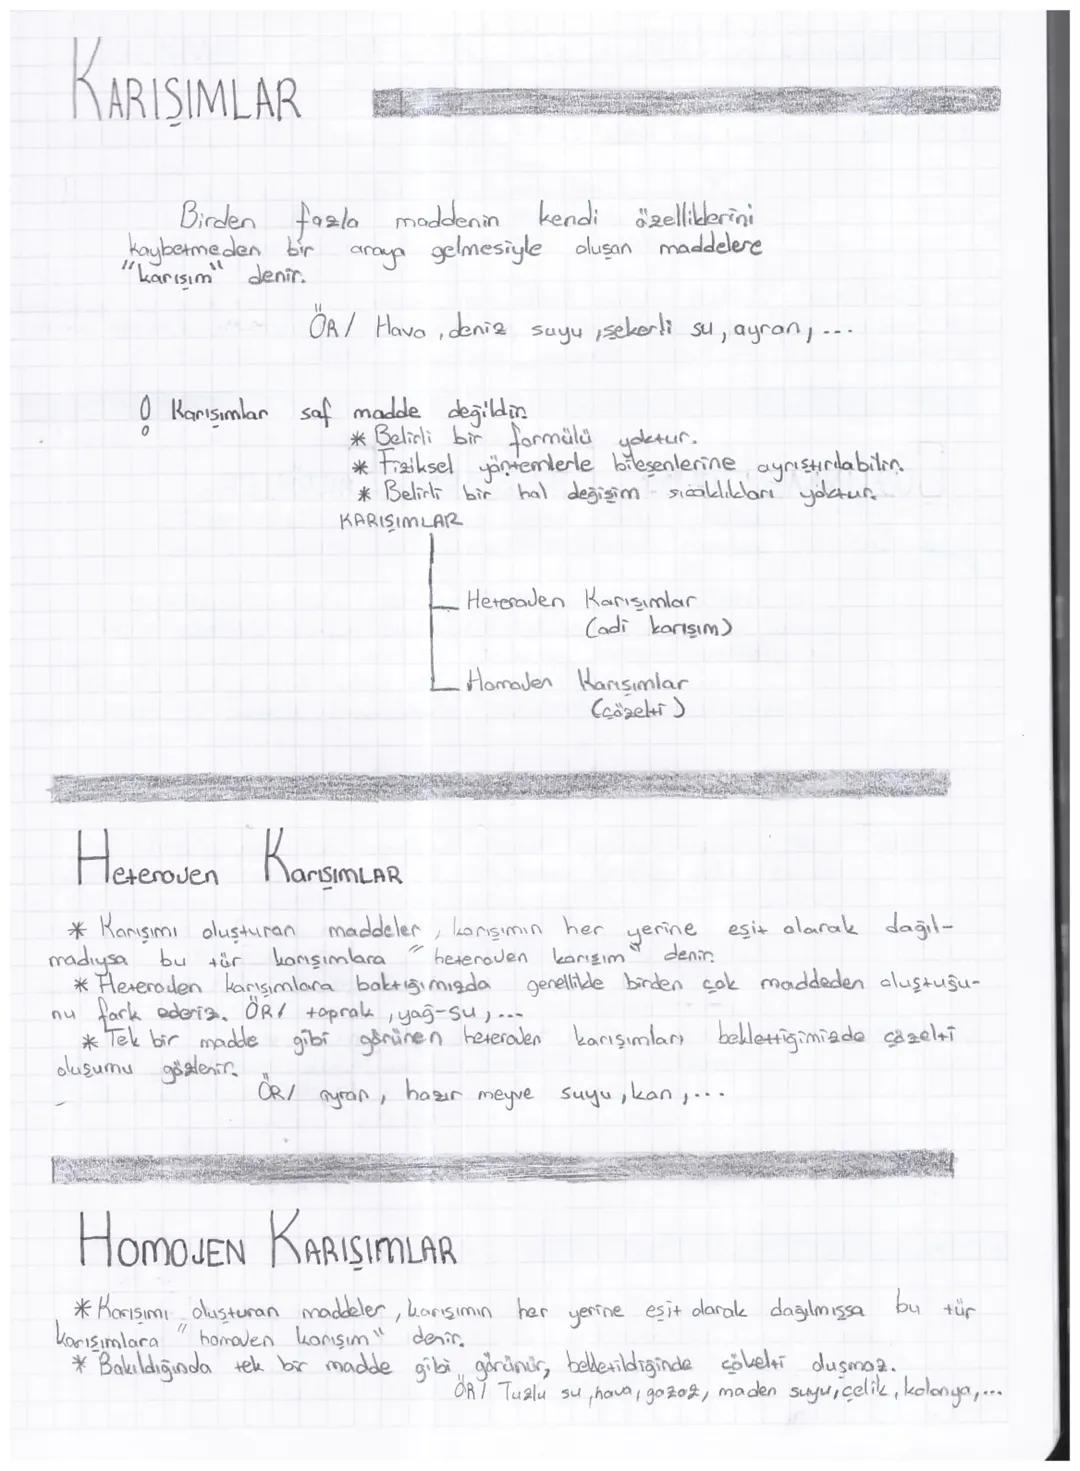 KARIŞIMLAR
Birden fazla maddenin kendi özelliklerini
kaybetmeden bir araya gelmesiyle oluşan maddelere
"karışım" denir.
ÖR/ Hava, deniz suyu, şekerli su, ayran, ...
! Karışımlar saf madde değildir.
* Belirli bir formülü yoktur.
* Fiziksel yöntemlerle bileşenlerine ayrıştırılabilir.
* Belirli bir hal değişim sıcaklıkları yoktur.
KARIŞIMLAR
Heterojen Karışımlar
(adi karışım)
Homojen Karışımlar
(çözelti)
Heterojen KarışımLAR
* Karışımı oluşturan maddeler, karışımın her yerine eşit olarak dağıl-
madıysa bu tür karışımlara "heterojen karışım" denir.
* Heterojen karışımlara baktığımızda genellikle birden çok maddeden oluştuğu-
nu fark ederiz. ÖR/ toprak, yağ-su, ...
* Tek bir madde gibi görünen heterojen karışımları beklettiğimizde çözelti
oluşumu gözlenir.
ÖR/ ayran, hazır meyve suyu, kan, ...
HOMOJEN KARIŞIMLAR
* Karışımı oluşturan maddeler, karışımın her yerine eşit olarak dağılmışsa bu tür
karışımlara "homojen karışım" denir.
* Bakıldığında tek bir madde gibi görünür, bekletildiğinde çökelti oluşmaz.
ÖR/ Tuzlu su, hava, gazoz, maden suyu, çelik, kolonya, ...